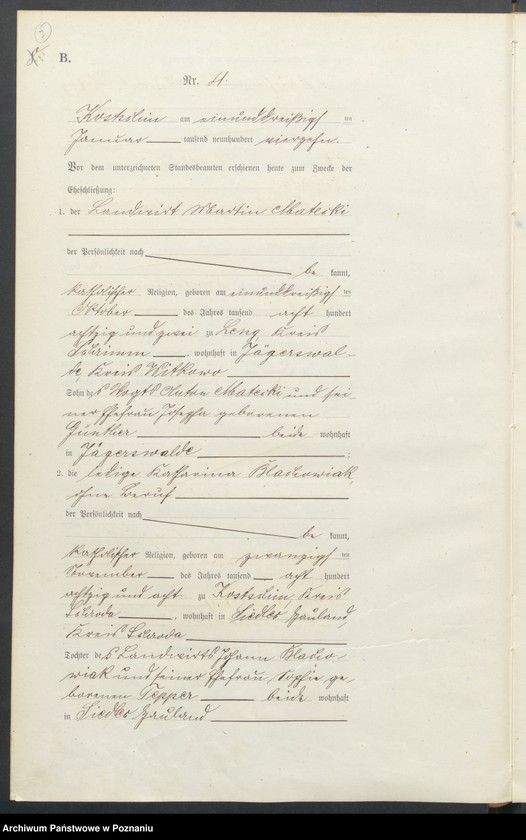 7
B.
Nr. 4.
Kostschin am einunddreißigsten
Januar tausend neunhundert vierzehn.
Vor dem unterzeichneten Standesbeamten erschienen heute zum Zwecke der
Eheschließung:
1. der Landwirt Martin Mateski
der Persönlichkeit nach
be kannt,
katholischer Religion, geboren am einunddreißigsten
Oktober des Jahres tausend acht hundert
achtzig und zwei zu Kreis
Schrimm, wohnhaft in Jägerswal-
de, Kreis Witkowo
Sohn des Vogts Anton Mateski und sei-
ner Ehefrau Josepha geborenen
Günther beide wohnhaft
in Jägerswalde
2. die ledige Katharina Blachowiak,
ohne Beruf
der Persönlichkeit nach
be kannt,
katholischer Religion, geboren am zwanzigsten
November des Jahres tausend acht hundert
achtzig und acht zu Kostschin, Kreis
Schroda, wohnhaft in Siedlec Hauland,
Kreis Schroda
Tochter des Landwirts Johann Blacho-
wiak und seiner Ehefrau Sophie ge-
borenen Tepper beide wohnhaft
in Siedlec Hauland
Archiwum Państwowe w Poznaniu